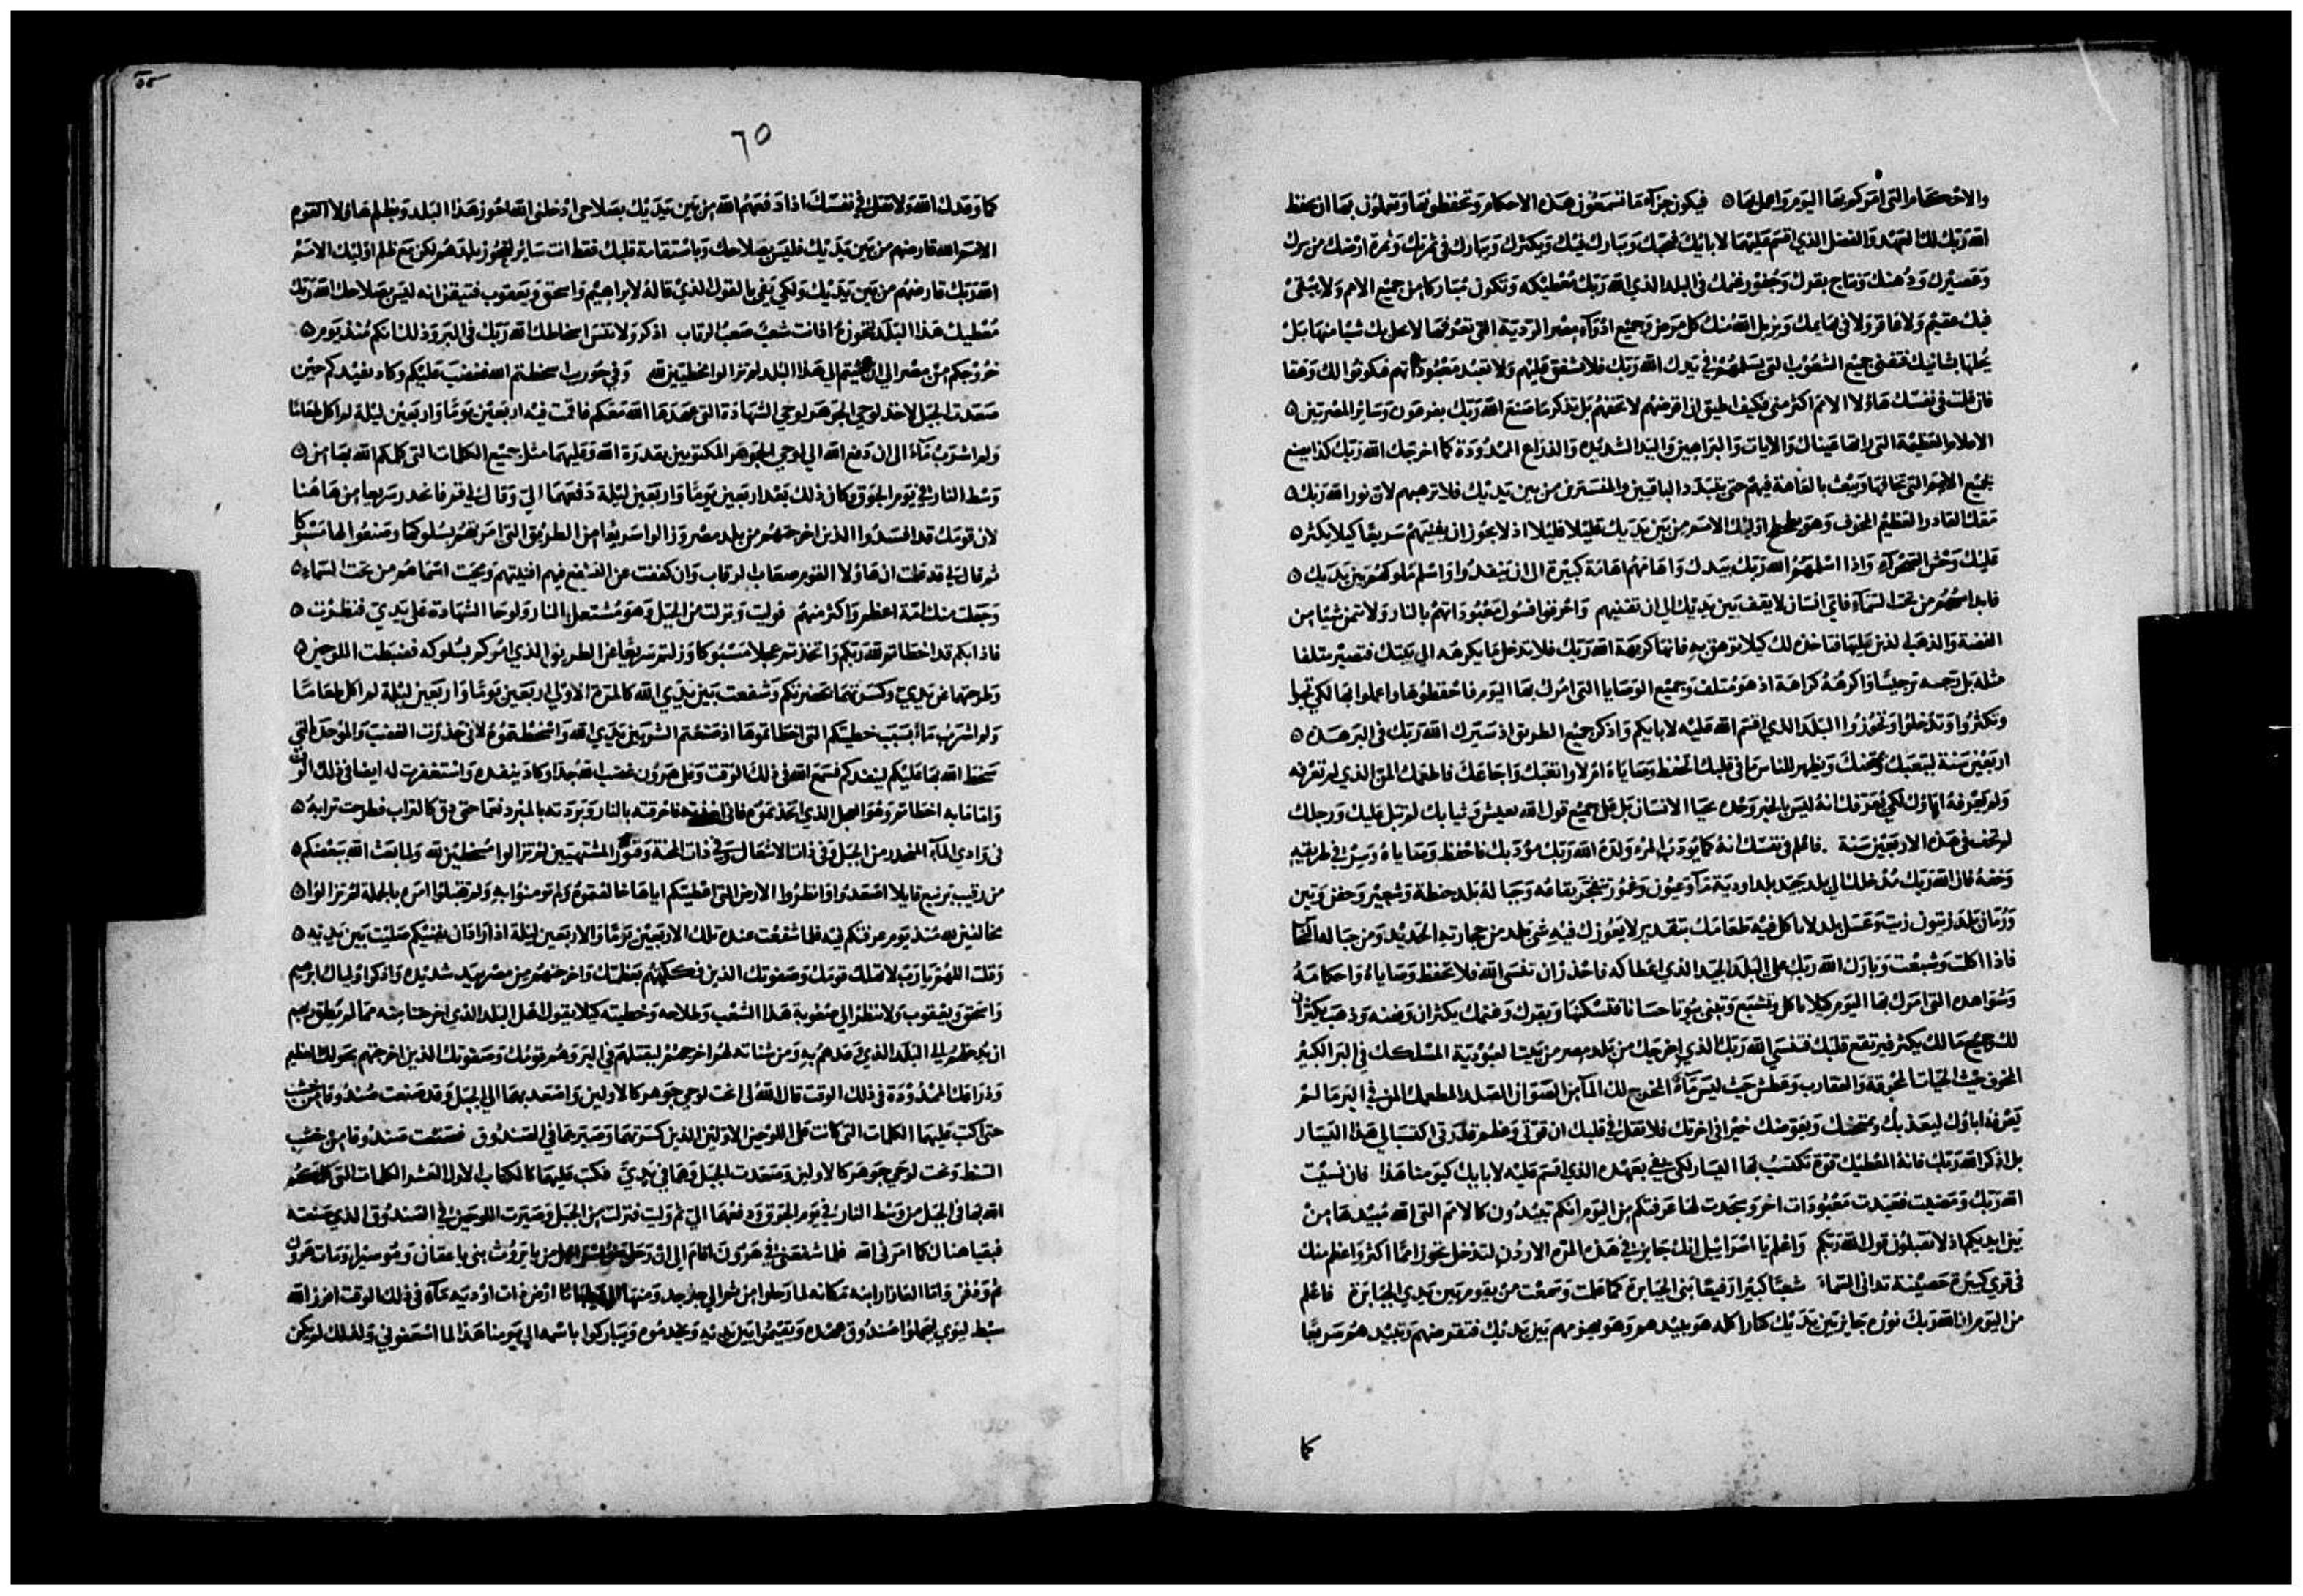 والاحكام التى امركم بها اليوم واعمل بها ٥ فيكون جزآء ما تسمعون هذه الاحكام وتحفظونها وتعملون بها ان يحفظ
الله ربك لك العهد والفضل الذي اقسم عليهما لابايك فيحبك ويبارك فيك ويكثرك ويبارك فى ثمرتك وثمرة ارضك من برك
وعصيرك ودهنك ونتاج بقرك وغنمك فى البلد الذي الله ربك معطيكه وتكون مباركا من جميع الامم ولا يبقى
فيك عقيم ولا عاقر ولا فى بهايمك ويزيل الله عنك كل مرض وجميع ادوآء مصر الرديّة التى تعرفها لا يحل بك شيا منها بل
يحلها بشانيك فتفنى جميع الشعوب التى يسلمهم فى يدك الله ربك فلا تشفق عليهم ولا تعبد معبوداتهم فيكونوا لك وهقا
فان قلت فى نفسك هاولا الامم اكثر منى فكيف اطيق ان اقرضهم لا تخفهم بل تذكر ما صنع الله ربك بفرعون وساير المصريين ٥
العظيمة التى راتها عيناك والايات والبراهين واليد الشديده والذراع الممدودة كما اخرجك الله ربك كذا يصنع
بجميع الامم التى تخافها ويبعث بالعاهة فيهم حتى يبيد الباقيين والمستترين من بين يديك فلا ترهبهم لان نور الله ربك ٥
معك القادر العظيم المخوف وهو اوليك الامم من بين يديك قليلا قليلا اذ لا يجوز ان يفنيهم سريعا كيلا يكثر ٥
عليك وحش الصحرآء واذا اسلمهم الله ربك بيدك واهانهم اهانة كبيرة الى ان ينفدوا واسلم ملوكهم بين يديك ٥
فابد اسمهم من تحت السمآء فاى انسان لا يقف بين يديك الى ان تفنيهم واحرقوا فسول معبوداتهم بالنار ولا تتمن شيا من
الفضة والذهب الذين عليها فتاخذ لك كيلا توهق به فانها كريهة الله ربك فلا تدخل ما يكرهه الى بيتك فتصير متلفا
مثله بل رجسه ترجيسا واكرهه كراهة اذ هو متلف وجميع الوصايا التى امرك بها اليوم فاحفظوها واعملوا بها لكى تحيوا
وتكثروا وتدخلوا وتحوزوا البلد الذي اقسم الله عليه لابايكم واذكر جميع الطريق اذ سيرك الله ربك فى البر هذه ٥
اربعين سنة ليتعبك ويمتحنك ويظهر للناس ما فى قلبك اتحفظ وصاياه ام لا واتعبك واجاعك فاطعمك المن الذي لم تعرفه
ولم يعرفه اباوك لكى يعرفك انه ليس بالخبز وحده يحيا الانسان بل على جميع قول الله يعيش وثيابك لم تبل عليك ورجلك
لم تحف فى هذه الاربعين سنة . فاعلم فى نفسك انه كما يودب المرء ولده الله ربك مودبك فاحفظ وصاياه وسر فى طريقيه
وخفه فان الله ربك مدخلك الى بلد جيد بلد اودية مآء وعيون وغمور تتفجر بقاعه وجباله بلد حنطة وشعير وجفن وتين
ورمان بلد زيتون زيت وعسل بلد لا تاكل فيه طعامك بتقدير لا يعوزك فيه شى بلد من حجارته الحديد ومن جباله النحاس
فاذا اكلت وشبعت وبارك الله ربك على البلد الجيد الذي اعطاكه فاحذر ان تنسى الله فلا تحفظ وصاياه واحكامه
وشواهده التى امرك بها اليوم كيلا تاكل وتشبع وتبنى بيوتا حسانا فتسكنها وبقرك وغنمك يكثران وفضه وذهب يكثران
لك وجميع مالك يكثر فيرتفع قلبك فتنسى الله ربك الذي اخرجك من بلد مصر من بيت العبودية المسلكك فى البر الكبير
المخوف حيث الحيات المحرقة والعقارب وعطش حيث ليس مآء المخرج لك المآء من الصوان الصلد المطعمك المن فى البر ما لم
يعرفه اباوك ليعذبك ويمتحنك ويعوضك خيرا فى اخرتك فلا تقل فى قلبك ان قوتى وعظم قدرتى اكتسبا لى هذا اليسار
بل اذكر الله ربك فانه المعطيك قوة تكتسب بها اليسار لكى يفى بعهده الذي اقسم عليه لابايك كيومنا هذا فان نسيت
الله ربك ومضيت فعبدت معبودات اخر وسجدت لها عرفتكم من اليوم انكم تبيدون كالامم التى الله مبيدها من
بين ايديكم اذ لا تقبلون قول الله ربكم واعلم يا اسراييل انك جايز فى هذه المرة الاردن لتدخل تحوز امما اكثر واعظم منك
فى قرى كبيرة حصينة تدانى السمآء شعبا كبيرا رفيعا بنى الجبابرة كما علمت وسمعت من يقوم بين يدي الجبابرة فاعلم
من اليوم ان الله ربك نوره جايز بين يديك كنار اكله هو يبيدهم وهو يهزمهم بين يديك فتقرضهم وتبيدهم سريعا
كما
٦٥
كما وعدك الله ولا تقل فى نفسك اذا دفعهم الله من بين يديك بصلاحى ادخلنى الله احوز هذا البلد وبظلم هاولا القوم
الامم الله قارضهم من بين يديك فليس بصلاحك وباستقامة قلبك فقط انت ساير لتحوز بلدهم لكن مع ظلم اوليك الامم
الله ربك قارضهم من بين يديك ولكى يفى بالقول الذي قاله لابراهيم واسحق ويعقوب فتيقن انه ليس بصلاحك الله ربك
معطيك هذا البلد لتحوزه اذ انت شعب صعب الرقاب اذكر ولا تنس اسخاطك الله ربك فى البر وذلك انكم منذ يوم ٥
خروجكم من مصر الى ان جيتم الى هذا البلد لم تزالوا مخطيين لله وفى حوريب اسخطتم الله فغضب عليكم وكاد يفنيدكم حين
صعدت الجبل لاخذ لوحى الجوهر لوحى الشهادة التى عهدها الله معكم فاقمت فيه اربعين يوما واربعين ليلة لم اكل طعاما
ولم اشرب مآء الى ان دفع الله الي لوحى الجوهر المكتوبين بقدرة الله وعليهما مثل جميع الكلمات التى كلمكم الله بها من ٥
وسط النار فى يوم الجوق وكان ذلك بعد اربعين يوما واربعين ليلة دفعهما الي وقال لى قم فانحدر سريعا من هاهنا
لان قومك قد افسدوا الذين اخرجتهم من بلد مصر وزالوا سريعا من الطريق التى امرتهم بسلوكها وصنعوا لها مسبوكا
ثم قال لى قد علمت ان هاولا القوم صعاب الرقاب وان كففت عن التشفع فيهم افنيتهم ومحيت اسماهم من تحت السمآء ٥
وجعلت منك امة اعظم واكثر منهم فوليت ونزلت من الجبل وهو مشتعل بالنار ولوحا الشهادة على يدي فنظرت ٥
فاذا بكم قد اخطاتم لله ربكم واتخذتم عجلا مسبوكا وزلتم سريعا عن الطريق الذي امركم بسلوكه فضبطت اللوحين ٥
وطرحتهما عن يدي وكسرتهما بحضرتكم وشفعت بين يدي الله كالمرة الاولى اربعين يوما واربعين ليلة لم اكل طعاما
ولم اشرب مآء بسبب خطيتكم التى اخطاتموها اذ صنعتم الشر بين يدي الله واسخطتموه لانى حذرت الغضب والموجدة التى
سخط الله بها عليكم لينفدكم فسمع الله فى ذلك الوقت وعلى هرون غضب الله جدا وكاد ينفده واستغفرت له ايضا فى ذلك الوقت
واما ما به اخطاتم وهو العجل الذي اتخذتموه فانى اخذته فاحرقته بالنار وبردته بالمبرد نعما حتى دق كالتراب فطرحت ترابه ٥
فى وادي المآء المنحدر من الجبل وفى ذات الاشعال وفى ذات المحنة وقبور المشتهيين لم تزالوا مسخطين لله ولما بعث الله ببعضكم ٥
من رقيم برنيع قايلا اصعدوا وانظروا الارض التى اعطيتكم اياها خالفتموه ولم تومنوا به ولم تقبلوا امره بالجملة لم تزالوا ٥
مخالفين لله منذ يوم عرفتكم فيه فلما شفعت عنده تلك الاربعين يوما والاربعين ليلة اذ اراد ان يفنيكم صليت بين يديه ٥
وقلت اللهم يا رب لا تهلك قومك وصفوتك الذين فككتهم بعظمتك واخرجتهم من مصر بيد شديده واذكر اولياك ابرهيم
واسحق ويعقوب ولا تنظر الى صعوبة هذا الشعب وظلامه وخطيته كيلا يقول اهل البلد الذي اخرجتنا منه مما لم يطق ربهم
ان يدخلهم الى البلد الذي وعدهم به ومن شناته لهم اخرجهم ليقتلهم فى البر وهم قومك وصفوتك الذين اخرجتهم بحولك العظيم
وذراعك الممدودة فى ذلك الوقت قال الله لى انحت لوحى جوهر كالاولين واصعد بهما الى الجبل وقد صنعت صندوقا من خشب
حتى اكتب عليهما الكلمات التى كانت على اللوحين الاولين الذين كسرتهما وصيرهما فى الصندوق فصنعت صندوقا من خشب
السنط ونحت لوحى جوهر كالاولين وصعدت الجبل وهما فى يدي فكتب عليهما كالكتاب الاول العشر الكلمات التى كلمكم
الله بها فى الجبل من وسط النار فى يوم الجوق ودفعهما الي ثم وليت فنزلت من الجبل وصيرت اللوحين فى الصندوق الذي صنعته
فبقيا هناك كما امرنى الله فلما شفعنى فى هرون اقام الى ان رحل بنو اسراييل من بايروث بنى ياعقان وموسيرا ومات هرون
ثم ودفن واما العازار ابنه مكانه لما رحلوا من ثم الى جدجد ومنها الى ارض ذات اوديه مآء فى ذلك الوقت افرز الله
سبط ليوي ليحملوا صندوق عهده ويقيموا بين يديه ويخدموه ويباركوا باسمه الى يومنا هذا لما اسعفونى ولذلك لم يكن